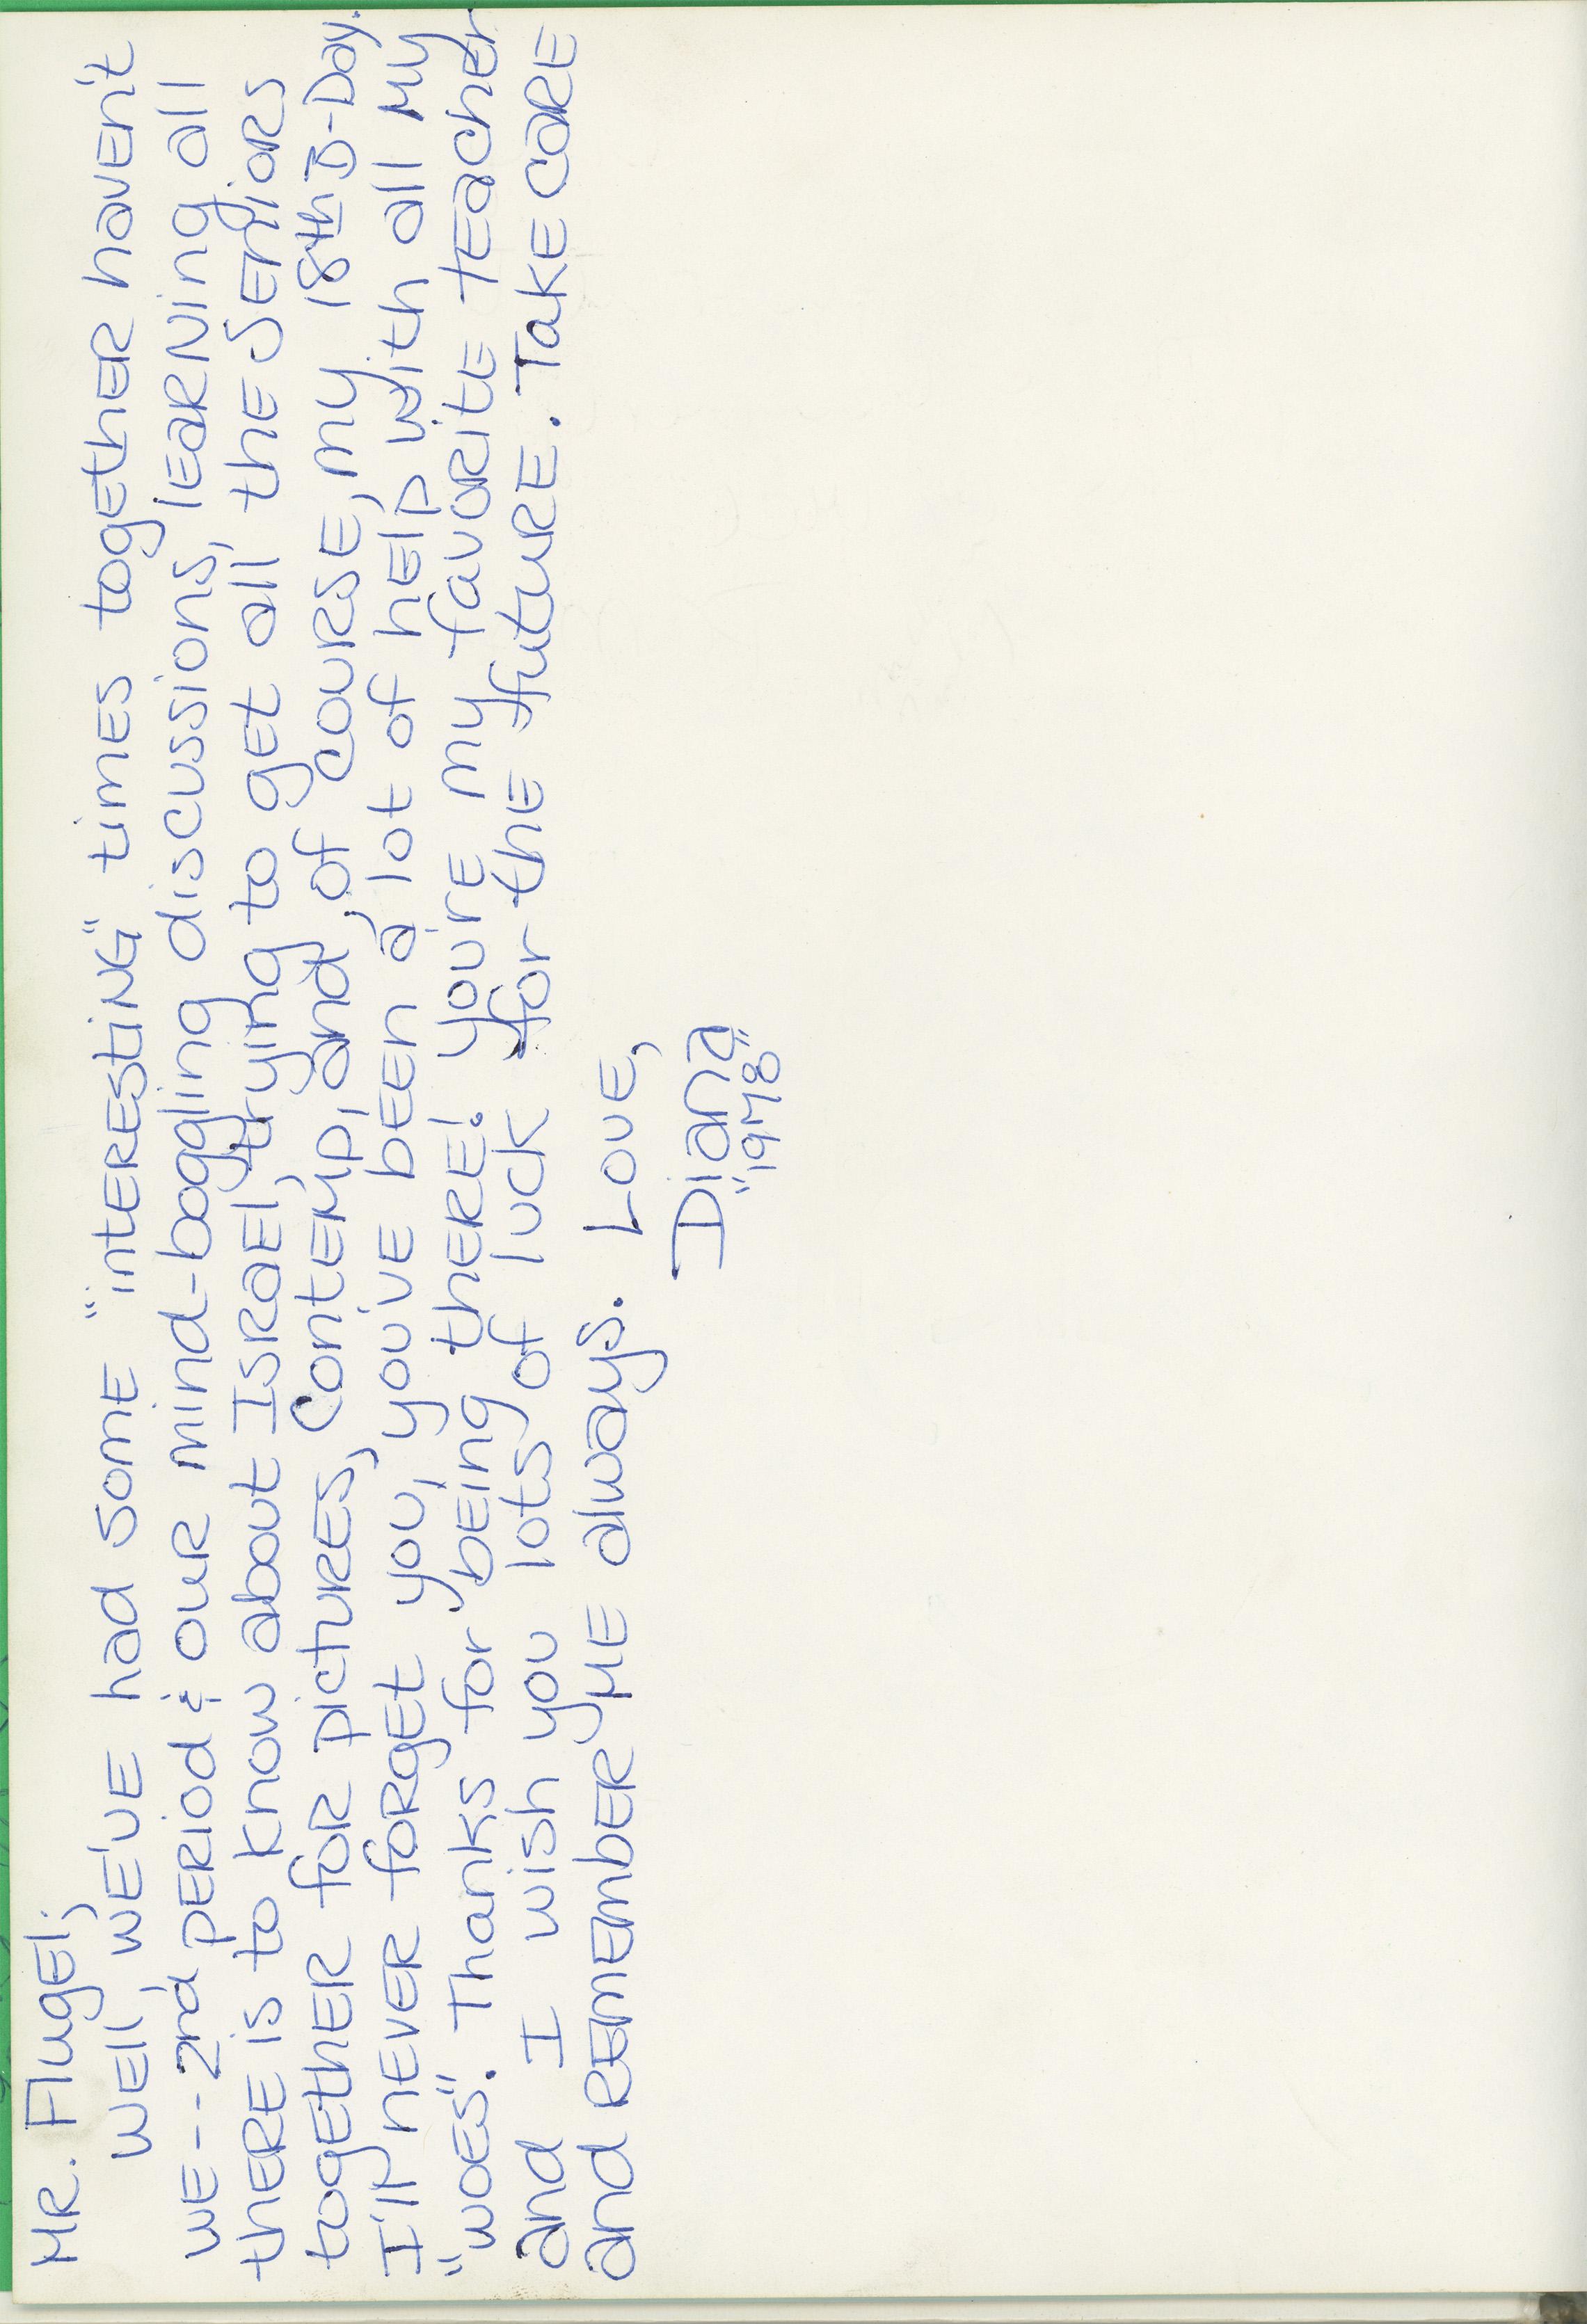 MR. Flugel;
Well, we've had some "interesting" times together haven't
we--- 2nd period & our mind-boggling discussions, learning all
there is to know about Israel, trying to get all the Seniors
together for pictures, Contemp, and, of course, my 18th B-Day.
I'll never forget you, you've been a lot of help with all my
"woes". Thanks for being there! You're my favorite teacher
and I wish you lots of luck for the future. Take care
and remember me always. Love,
Diana
"1978"